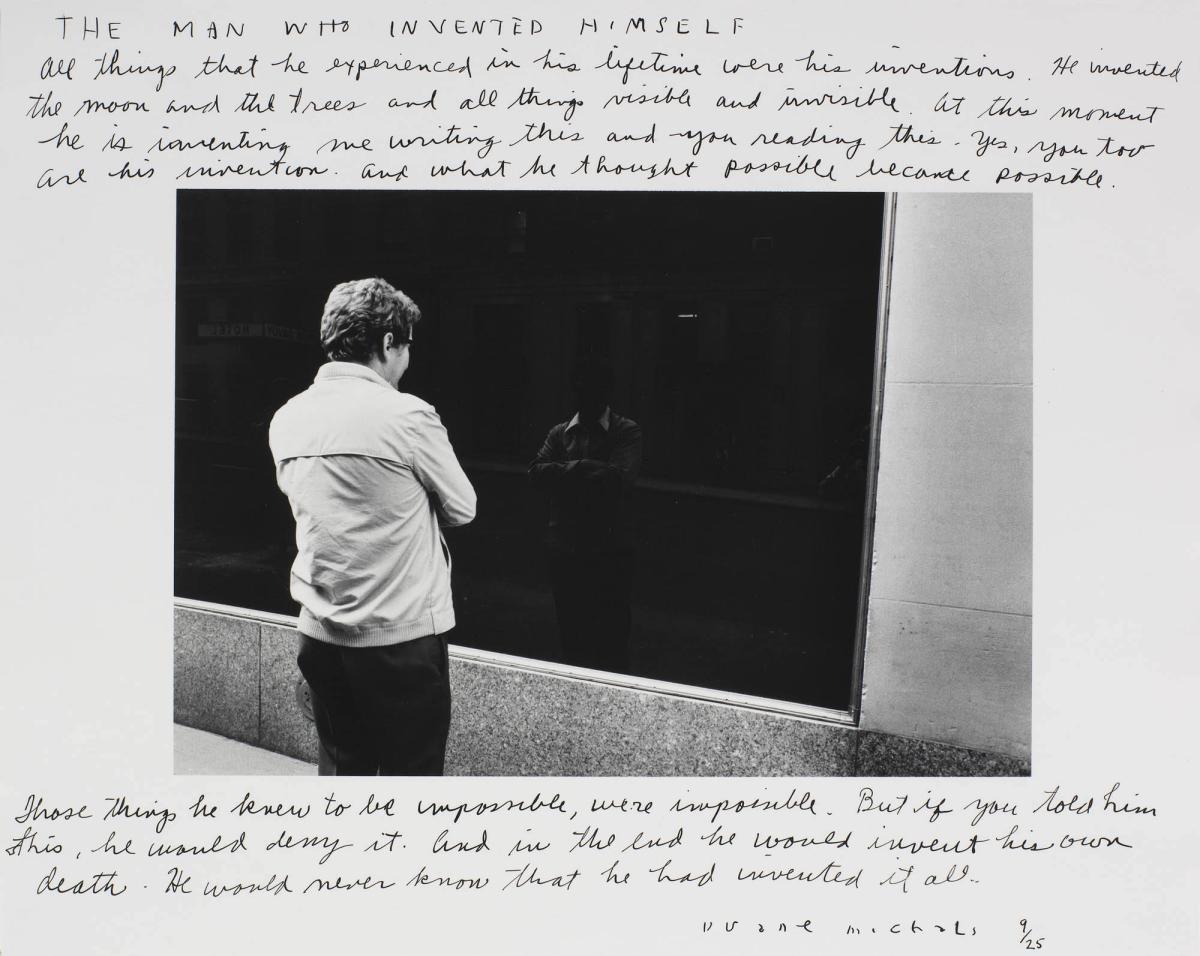 THE MAN WHO INVENTED HIMSELF
All things that he experienced in his lifetime were his inventions. He invented
the moon and the trees and all things visible and invisible. At this moment
he is inventing me writing this and you reading this. Yes, you too
are his invention. And what he thought possible became possible.
HOTEL
Those things he knew to be impossible, were impossible. But if you told him
this, he would deny it. And in the end he would invent his own
death. He would never know that he had invented it all.
Duane Michals 9/25